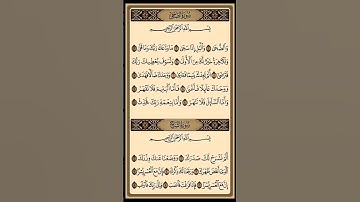 سُورَةُ الضُّحَىٰ
بِسْمِ اللَّهِ الرَّحْمَٰنِ الرَّحِيمِ
وَالضُّحَىٰ ۝ وَاللَّيْلِ إِذَا سَجَىٰ ۝ مَا وَدَّعَكَ رَبُّكَ وَمَا قَلَىٰ ۝
وَلَلْآخِرَةُ خَيْرٌ لَّكَ مِنَ الْأُولَىٰ ۝ وَلَسَوْفَ يُعْطِيكَ رَبُّكَ
فَتَرْضَىٰ ۝ أَلَمْ يَجِدْكَ يَتِيمًا فَآوَىٰ ۝ وَوَجَدَكَ ضَالًّا فَهَدَىٰ ۝
وَوَجَدَكَ عَائِلًا فَأَغْنَىٰ ۝ فَأَمَّا الْيَتِيمَ فَلَا تَقْهَرْ ۝
وَأَمَّا السَّائِلَ فَلَا تَنْهَرْ ۝ وَأَمَّا بِنِعْمَةِ رَبِّكَ فَحَدِّثْ ۝
سُورَةُ الشَّرْحِ
بِسْمِ اللَّهِ الرَّحْمَٰنِ الرَّحِيمِ
أَلَمْ نَشْرَحْ لَكَ صَدْرَكَ ۝ وَوَضَعْنَا عَنكَ وِزْرَكَ ۝
الَّذِي أَنقَضَ ظَهْرَكَ ۝ وَرَفَعْنَا لَكَ ذِكْرَكَ ۝ فَإِنَّ مَعَ الْعُسْرِ يُسْرًا ۝
إِنَّ مَعَ الْعُسْرِ يُسْرًا ۝ فَإِذَا فَرَغْتَ فَانصَبْ ۝ وَإِلَىٰ رَبِّكَ فَارْغَب ۝